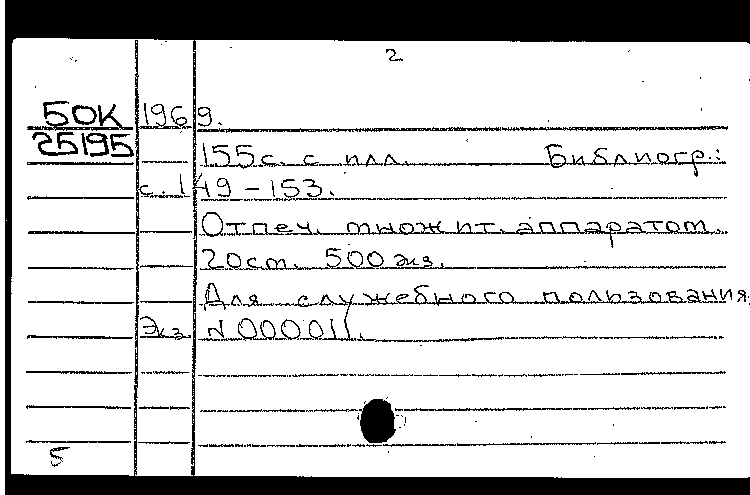 2
50К 1969.
25195 155с. с илл. Библиогр.:
с. 149-153.
Отпеч. множит. аппаратом.
20см. 500 экз.
Для служебного пользования
Экз. N 000011.
5